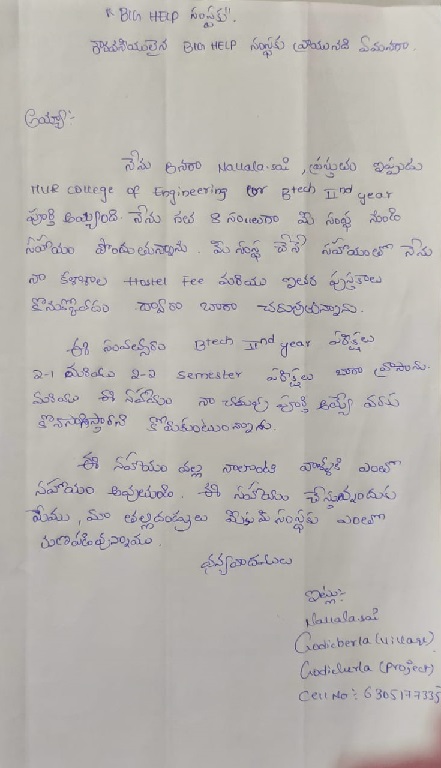 "BIG HELP సంస్థకు".
గౌరవనీయులైన BIG HELP సంస్థకు వ్రాయునది ఏమనగా.
అయ్యా:-
నేను అనగా Nallala.sai, ప్రస్తుతం ఇప్పుడు
MVR College of Engineering లో Btech IInd year
పూర్తి అయ్యింది. నేను గత 8 సంలుగా మీ సంస్థ నుండి
సహాయం పొందుతున్నాను. మీ సంస్థ చేసే సహాయంతో నేను
నా కళాశాల Hostel Fee మరియు ఇతర పుస్తకాలు
కొనుక్కోవడం ద్వారా బాగా చదువుతున్నాను.
ఈ సంవత్సరం Btech IInd year పరీక్షలు
2-1 మరియు 2-2 semester పరీక్షలు బాగా వ్రాసాను.
మరియు ఈ సహాయం నా చదువు పూర్తి అయ్యే వరకు
కొనసాగిస్తారని కోరుకుంటున్నాను.
ఈ సహాయం వల్ల నాలాంటి వాళ్ళకి ఎంతో
సహాయం అవుతుంది. ఈ సహాయం చేస్తున్నందుకు
మేము, మా తల్లిదండ్రులు మీకు మీ సంస్థకు ఎంతో
రుణపడివున్నాము.
ధన్యవాదములు
ఇట్లు:-
Nallala.sai
Godicherla (village)
Godicherla (project)
Cell No: 6305177335